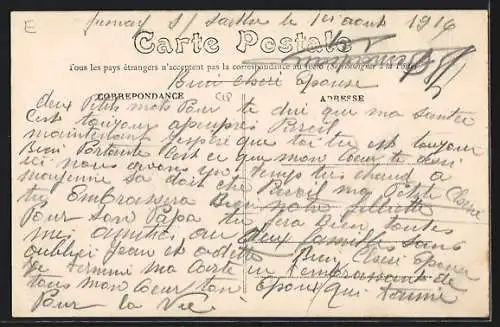 E
s/ Sarthe le 1er août 1916
Carte Postale
Tous les pays étrangers n'acceptent pas la correspondance au recto (Se renseigner à la Poste)
Bien cheré épouse
CORRESPONDANCE
ADRESSE
deux Petits mots Pour te dire que ma santee
C'est toujour apeuprés Pareil
maintenant j'espére que toi tu est toujour
Bien Portante C'est ce que mon Coeur te desir
ici nous avons un temps tres chaud a
sa doit etre Pareil ma Petite Cherie
tu Embrassera Bien notre fillette
Pour son Papa tu fera Bien toutes
mes amities au deux familles sans
oublier Jean et odette Bien Cheré épouse
Je termine ma Carte en t'embrassant de
tous mon Coeur ton époux qui t'aime
Pour la Vie